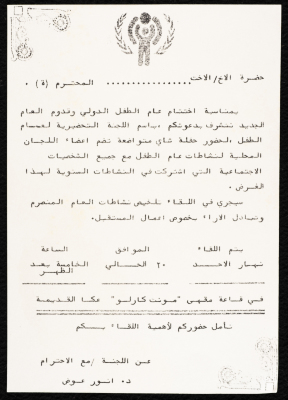 حضرة الاخ/الاخت ................. المحترم (ة) .
بمناسبة اختتام عام الطفل الدولي وقدوم العام
الجديد نتشرف بدعوتكم وباسم اللجنة التحضيرية لعام
الطفل، لحضور حفلة شاي متواضعة تضم اعضاء اللجان
المحلية لنشاطات عام الطفل مع جميع الشخصيات
الاجتماعية التي اشتركت في النشاطات السنوية لهذا
الغرض.
سيجري في اللقاء تلخيص نشاطات العام المنصرم
وتبادل الاراء بخصوص اعمال المستقبل.
يتم اللقاء الموافق الساعة
نهار الاحد ٣٠ الحالي الخامسة بعد
الظهر
في قاعة مقهى "مونت كارلو" عكا القديمة
نأمل حضوركم لأهمية اللقاء بكم
عن اللجنة /مع الاحترام
د. انور عوض